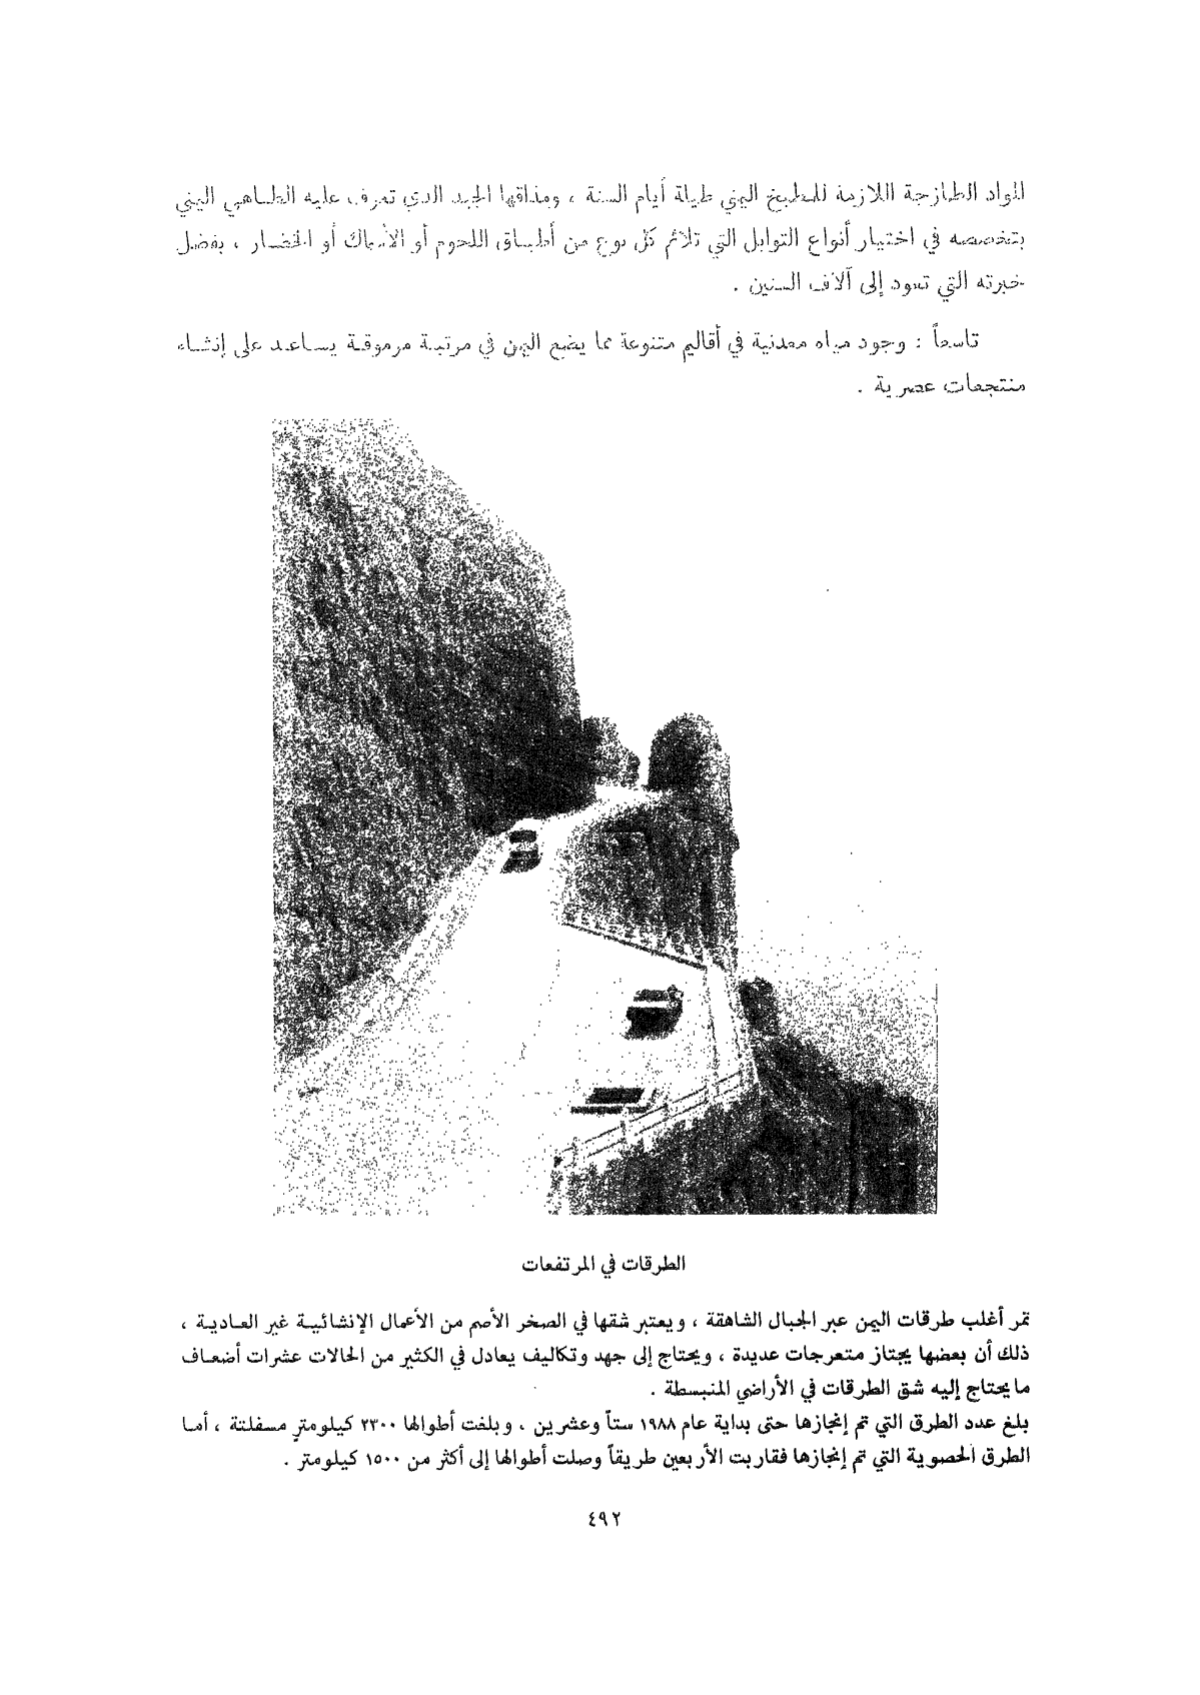 المواد الطازجة اللازمة للمطبخ اليمني طيلة أيام السنة ، ومذاقها الجيد الذي تعرف عليه الطاهي اليمني
بتخصصه في اختيار أنواع التوابل التي تلائم كل نوع من أطباق اللحوم أو الأسماك أو الخضار ، بفضل
خبرته التي تعود إلى آلاف السنين .
تاسعاً : وجود مياه معدنية في أقاليم متنوعة مما يضع اليمن في مرتبة مرموقة يساعد على إنشاء
منتجعات عصرية .
الطرقات في المرتفعات
تمر أغلب طرقات اليمن عبر الجبال الشاهقة ، ويعتبر شقها في الصخر الأصم من الأعمال الإنشائية غير العادية ،
ذلك أن بعضها يجتاز متعرجات عديدة ، ويحتاج إلى جهد وتكاليف يعادل في الكثير من الحالات عشرات أضعاف
ما يحتاج إليه شق الطرقات في الأراضي المنبسطة .
بلغ عدد الطرق التي تم إنجازها حتى بداية عام ١٩٨٨ ستاً وعشرين ، وبلغت أطوالها ٢٣٠٠ كيلومترٍ مسفلتة ، أما
الطرق الحصوية التي تم إنجازها فقاربت الأربعين طريقاً وصلت أطوالها إلى أكثر من ١٥٠٠ كيلومتر .
٤٩٢